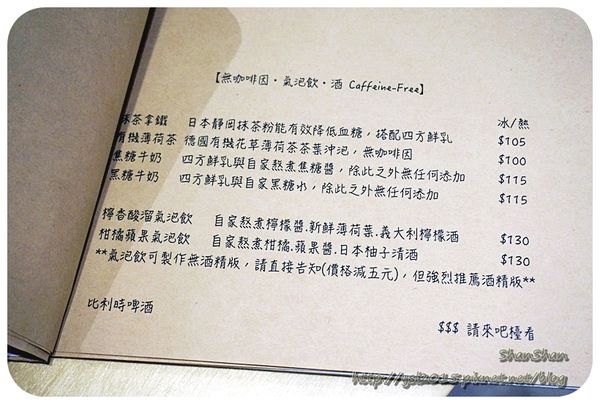 【無咖啡因・氣泡飲・酒 Caffeine-Free】
冰/熱
抹茶拿鐵 日本靜岡抹茶粉能有效降低血糖，搭配四方鮮乳 $105
有機薄荷茶 德國有機花草薄荷茶茶葉沖泡，無咖啡因 $100
焦糖牛奶 四方鮮乳與自家熬煮焦糖醬，除此之外無任何添加 $115
黑糖牛奶 四方鮮乳與自家黑糖水，除此之外無任何添加 $115
檸香酸溜氣泡飲 自家熬煮檸檬醬.新鮮薄荷葉.義大利檸檬酒 $130
柑橘蘋果氣泡飲 自家熬煮柑橘.蘋果醬.日本柚子清酒 $130
**氣泡飲可製作無酒精版，請直接告知(價格減五元)，但強烈推薦酒精版**
比利時啤酒 $$$ 請來吧檯看
ShanShan